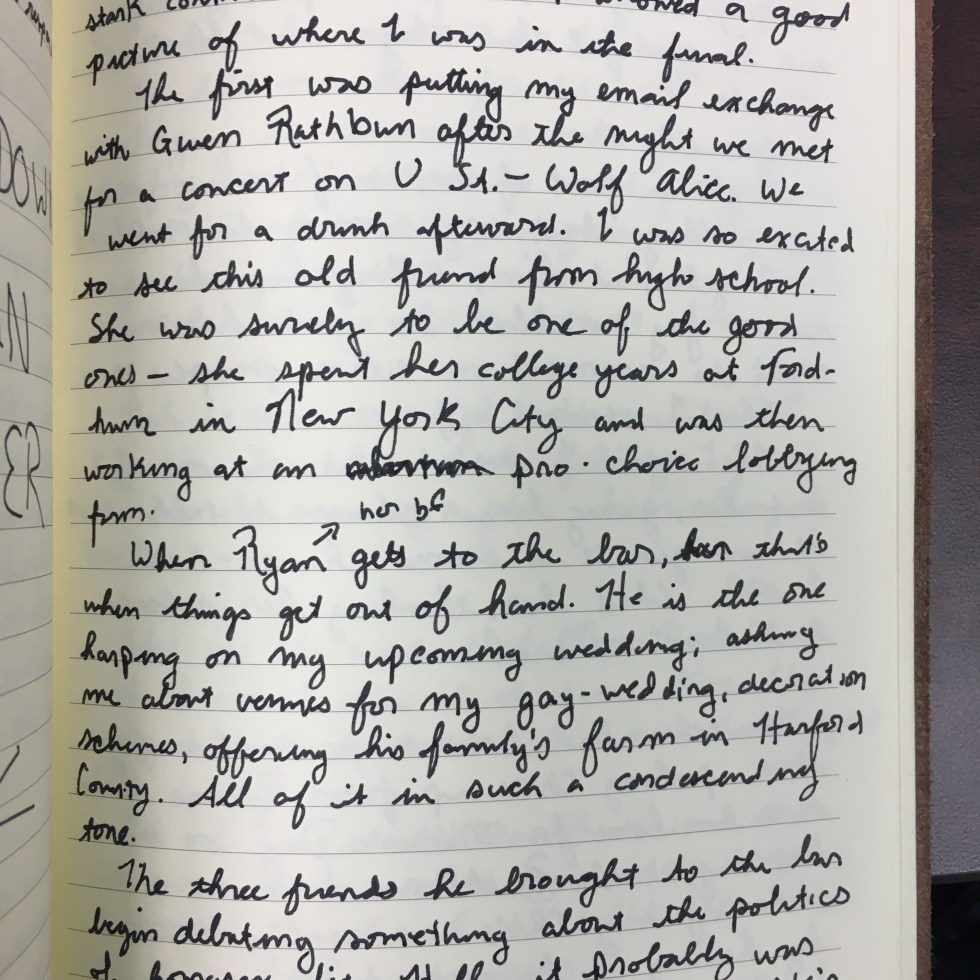 stark
a good
picture of where I was in the final.
The first was putting my email exchange
with Gwen Rathbun after the night we met
for a concert on U St. – Wolf Alice. We
went for a drink afterward. I was so excited
to see this old friend from high school.
She was surely to be one of the good
ones – she spent her college years at Ford-
ham in New York City and was then
working at an pro-choice lobbying
firm.
her bf
When Ryan gets to the bar, that's
when things get out of hand. He is the one
harping on my upcoming wedding; asking
me about venues for my gay-wedding, decoration
schemes, offering his family's farm in Harford
County. All of it in such a condescending
tone.
The three friends he brought to the bar
begin debating something about the politics
of it probably was
DOW
N
ER